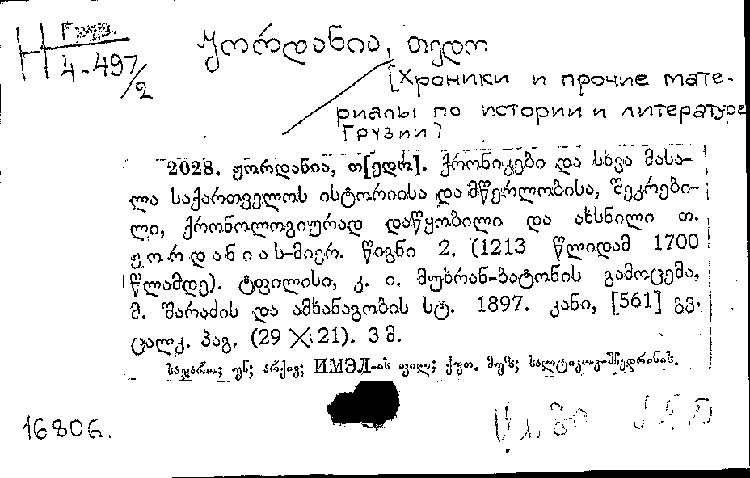 Груз.
Н 4-497/2
ჟორდანია, თედო
[Хроники и прочие мате-
риалы по истории и литературе
Грузии]
2028. ჟორდანია, თ[ედო]. ქრონიკები და სხვა მასა-
ლა საქართველოს ისტორიისა და მწერლობისა, შეკრები-
ლი, ქრონოლოგიურად დაწყობილი და ახსნილი თ.
ჟორდანიას-მიერ. წიგნი 2. (1213 წლიდამ 1700
წლამდე). ტფილისი, კ. ი. მუხრან-ბატონის გამოცემა,
მ. შარაძის და ამხანაგობის სტ. 1897. კანი, [561] გვ.
ცალკ. პაგ. (29 X 21). 3 მ.
საჯარო; უნ; არქივ; ИМЭЛ-ის ფილ; ქუთ. მუზ; სალტიკოვ-შჩედრინის.
16806.